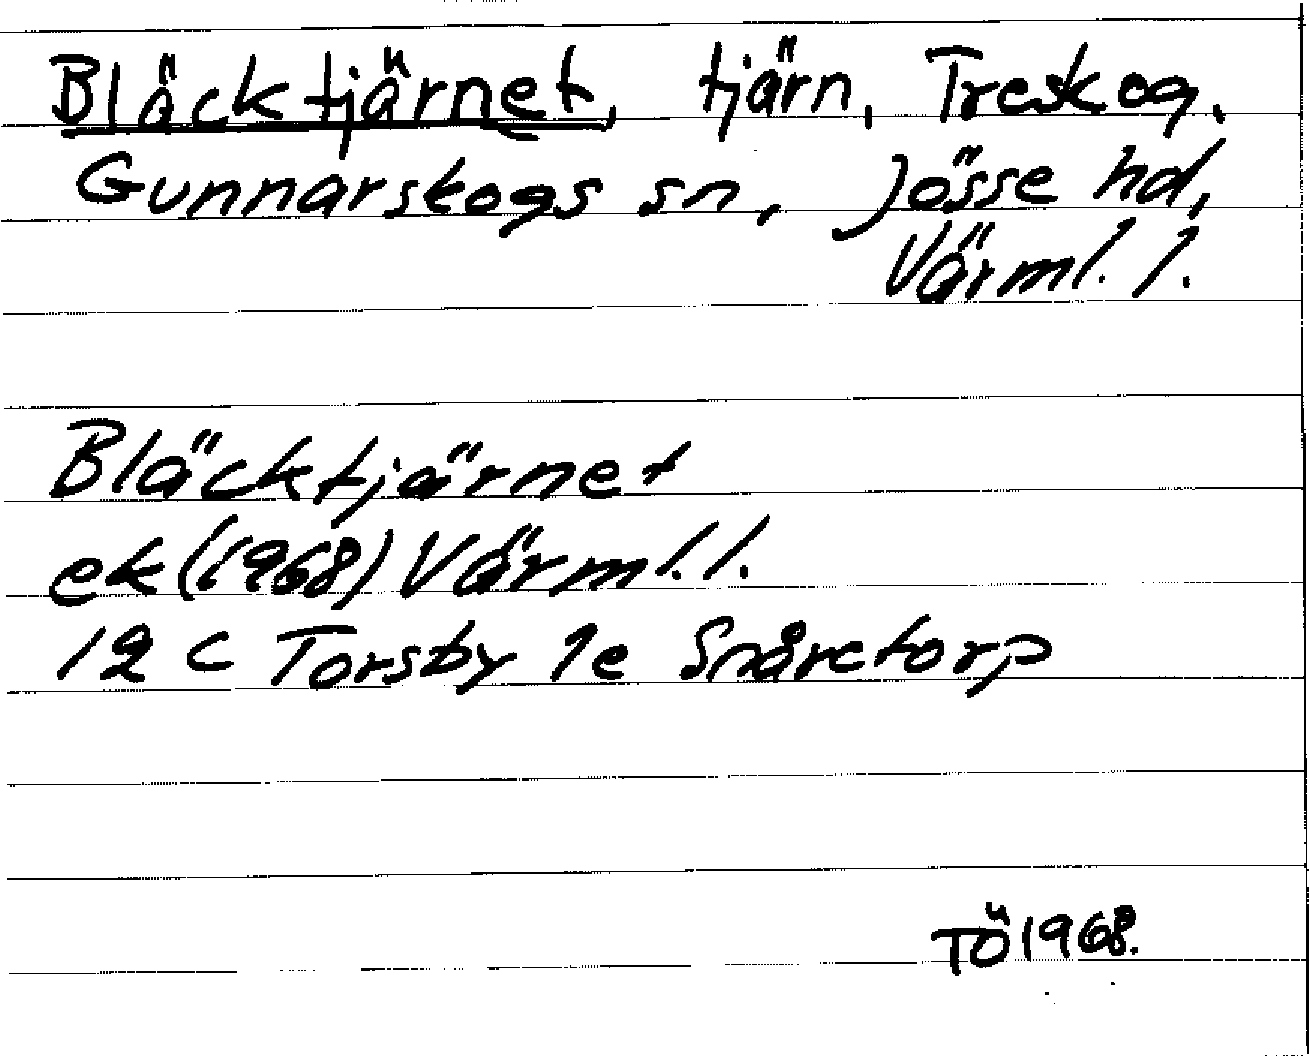 Bläcktjärnet, tjärn, Treskog.
Gunnarskogs sn, Jösse hd,
Värml. l.
Bläcktjärnet
ek (1968) Värml. l.
12 C Torsby 1e Snåretorp
TÖ 1968.